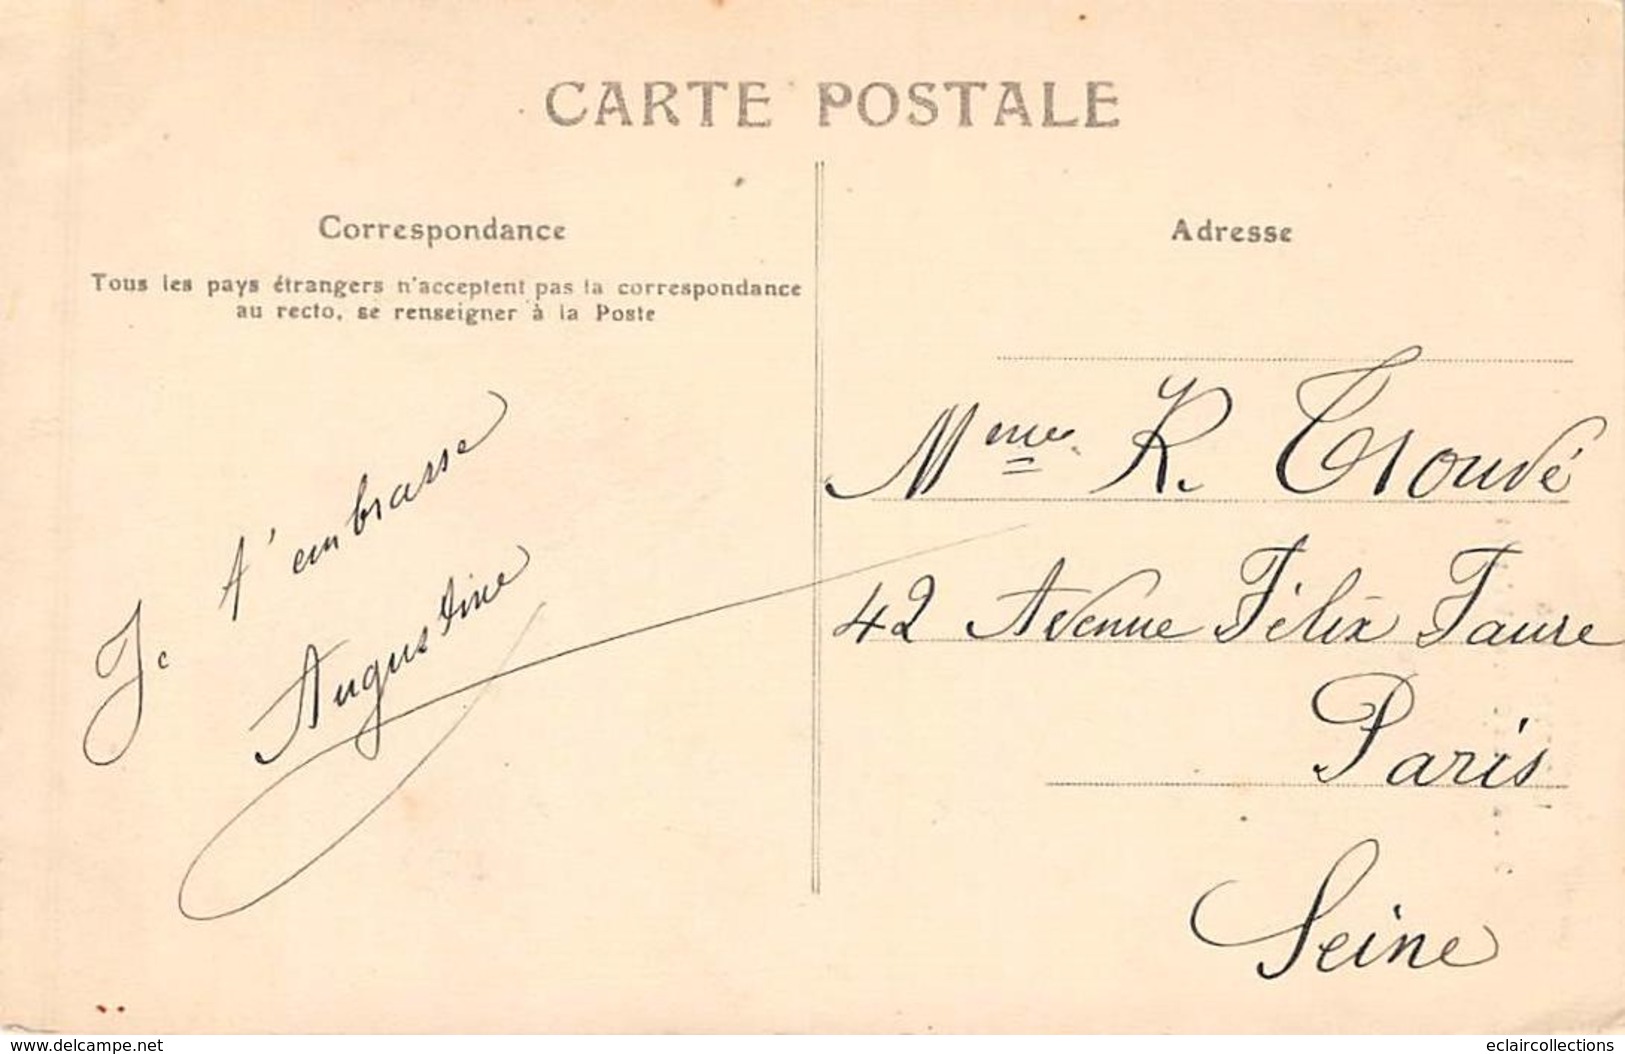 CARTE POSTALE
Correspondance
Tous les pays étrangers n'acceptent pas la correspondance
au recto, se renseigner à la Poste
Je t'embrasse
Augustine
Adresse
Mme R. Trouvé
42 Avenue Félix Faure
Paris
Seine
www.delcampe.net
eclaircollections